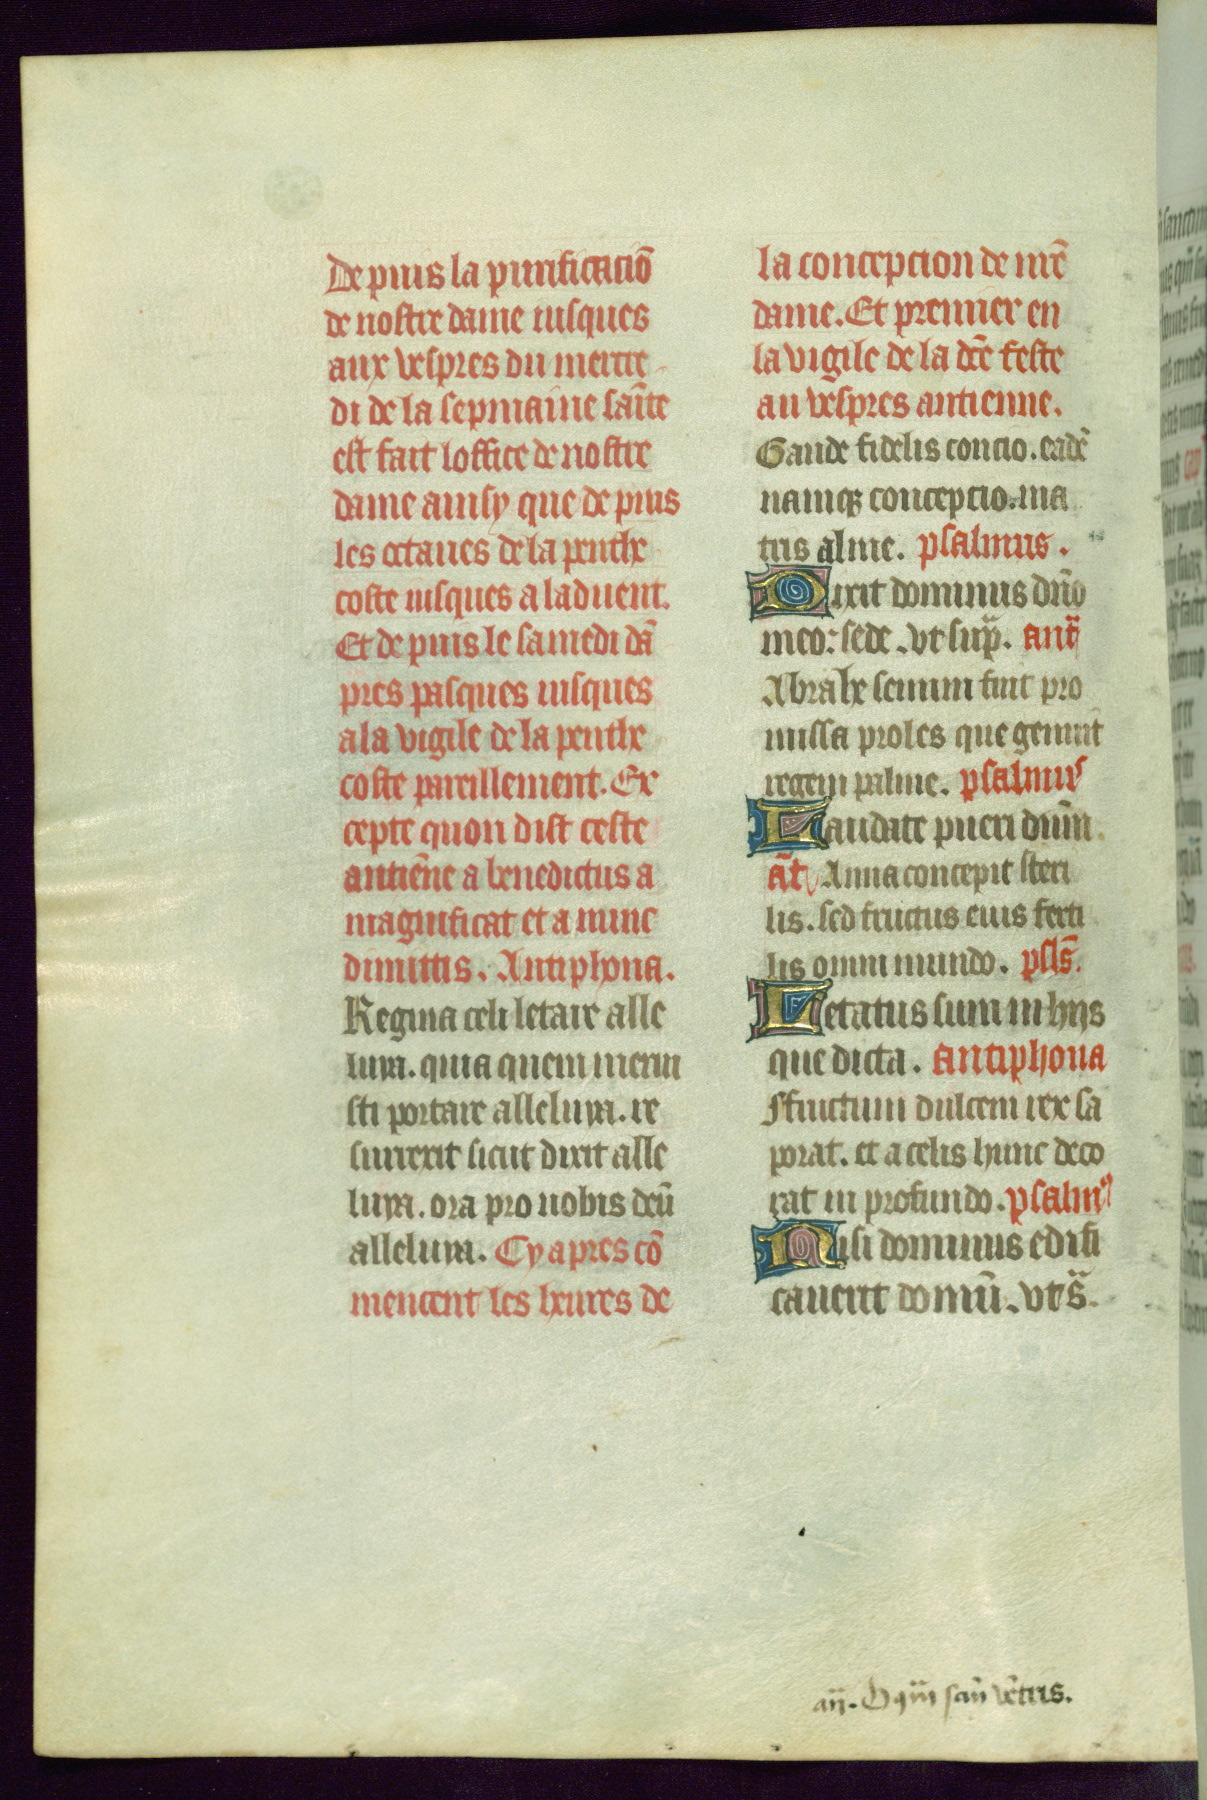 De puis la purificaciō
de nostre dame iusques
aux vespres du mercre
di de la sepmaine saīte
est fait loffice de nostre
dame ainsy que de puis
les octaues de la penthe
coste iusques a laduent.
Et de puis le samedi dā
pres pasques iusques
a la vigile de la penthe
coste pareillement. Ex
cepte quon dist ceste
antiēne a benedictus a
magnificat et a nunc
dimittis. Antiphona.
Regina celi letare alle
luya. quia quem merui
sti portare alleluya. re
surrexit sicut dixit alle
luya. ora pro nobis deū
alleluya. Cy apres cō
mencent les heures de
la concepcion de nr̄e
dame. Et premier en
la vigile de la dc̄e feste
au vespres antienne.
Gaude fidelis concio. eadē
namqꝫ concepcio. ma
tris alme. psalmus.
Dixit dominus dn̄o
meo: sede. vt sup̄. ant̄
Abrahe semini fuit pro
missa proles que genuit
regem palme. psalmus
Laudate pueri dnūm.
āt Anna concepit steri
lis. sed fructus eius ferti
lis omni mundo. psl̄s.
Letatus sum in hijs
que dicta. Antiphona
Ffructum dulcem rex sa
porat. et a celis hunc deco
rat in profundo. psalmꝰ
Nisi dominus edifi
cauerit domū. vt s̄.